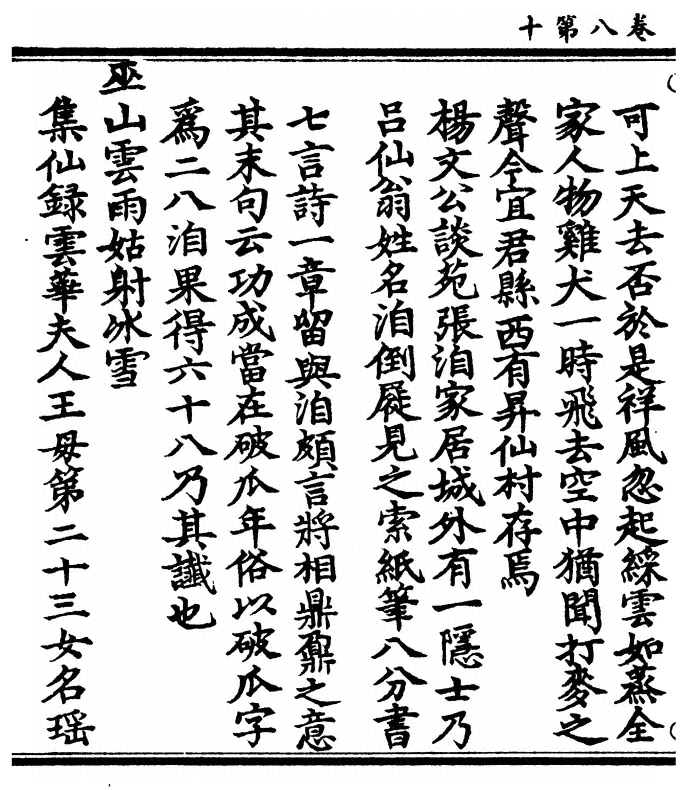 卷八第十
可上天去否於是祥風忽起綵雲如蒸全
家人物雞犬一時飛去空中猶聞打麥之
聲今宜君縣西有昇仙村存焉
楊文公談苑張洎家居城外有一隱士乃
呂仙翁姓名洎倒屣見之索紙筆八分書
七言詩一章留與洎頗言將相鼎鼐之意
其末句云功成當在破瓜年俗以破瓜字
爲二八洎果得六十八乃其讖也
巫山雲雨姑射冰雪
集仙録雲華夫人王母第二十三女名瑶